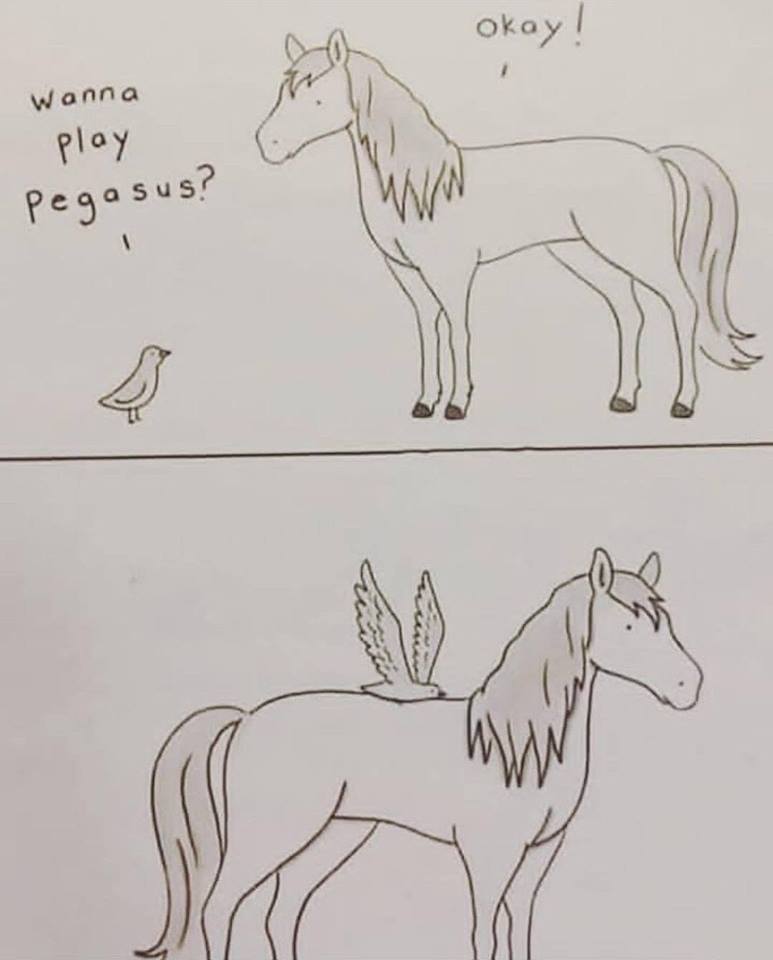 wanna
play
pegasus?
okay!